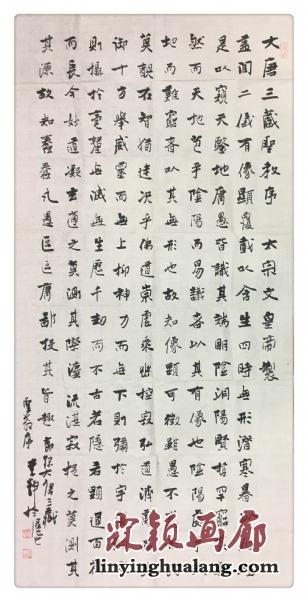 大唐三藏聖教序 太宗文皇帝製
蓋聞二儀有像顯覆載以含生四時無形潛寒暑
是以窺天鑒地庸愚皆識其端明陰洞陽賢哲罕窮
然而天地苞乎陰陽而易識者以其有像也陰陽處乎
地而難窮者以其無形也故知像顯可徵雖愚不
莫覩在智猶迷況乎佛道崇虛乘幽控寂弘道濟
御十方舉威靈而無上抑神力而無下則彌於宇
則攝於毫釐無滅無生歷千劫而不古若隱若顯運百福
而長今妙道凝玄遵之莫測其際法流湛寂挹之莫測其
其源故知蠢蠢凡愚區區庸鄙投其旨趣
聖教序
霖颖画廊
linyinghualang.com